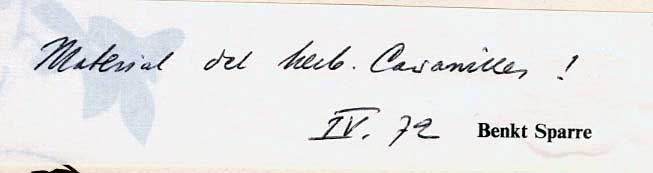 Material del herb. Cavanilles !
IV. 72 Benkt Sparre